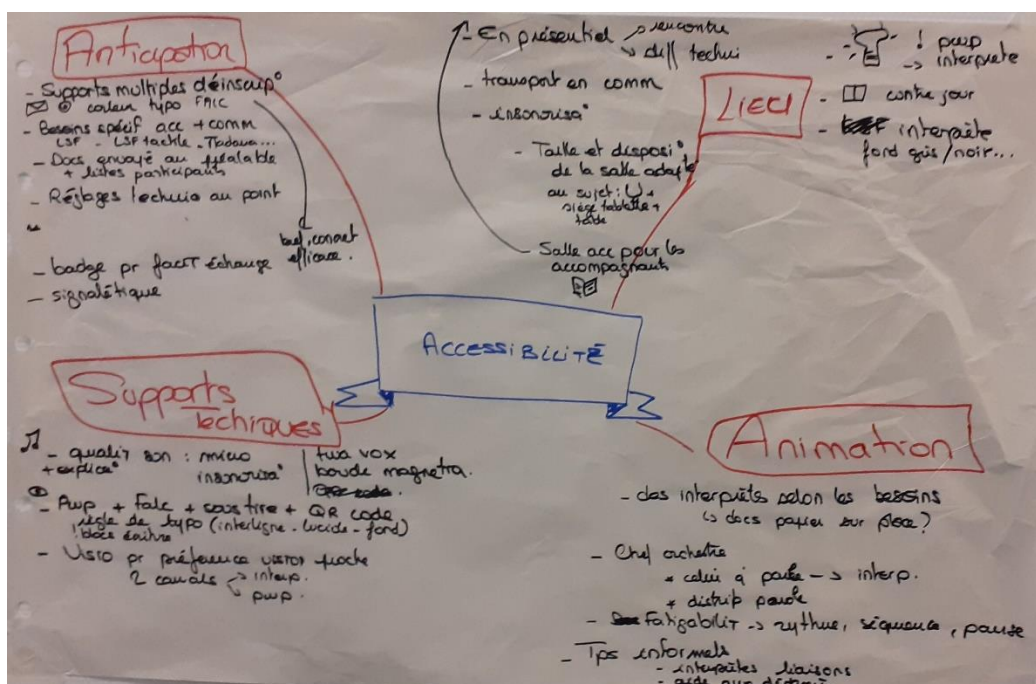 Anticipation
- Supports multiples d'é inscrip°
couleur typo FALC
- Besoins spécif acc + comm
LSF - LSF tactile - Tadoma...
- Docs envoyé au préalable
+ listes participants
- Réglages technic au point
bref, concret
efficace.
- badge pr faciT échange
- signalétique
- En présentiel → rencontre
→ diff techni
- transport en comm
- insonorisa°
- Taille et disposi°
de la salle adapté
au sujet : U +
siège tablette +
table
- Salle acc pour les
accompagnants
LIEU
- ! pwp
→ interprète
- contre jour
- interprète
fond gris/noir...
ACCESSIBILITÉ
Supports
Techniques
- qualiT son : micro
+ explica° insonorisa°
boucle magnétia.
QR code.
- Pwp + Falc + sous titre + QR code
règle de typo (interligne - lucide - fond)
- Visio pr préférence vision proche
2 canals → interp.
→ pwp.
Animation
- des interprêts selon les besoins
↳ docs papier sur place ?
- Chef orchestre
* celui à parle → interp.
* distrib parole
- FatigabiliT → rythme, séquence, pause
- Tps informels
- interprètes liaisons